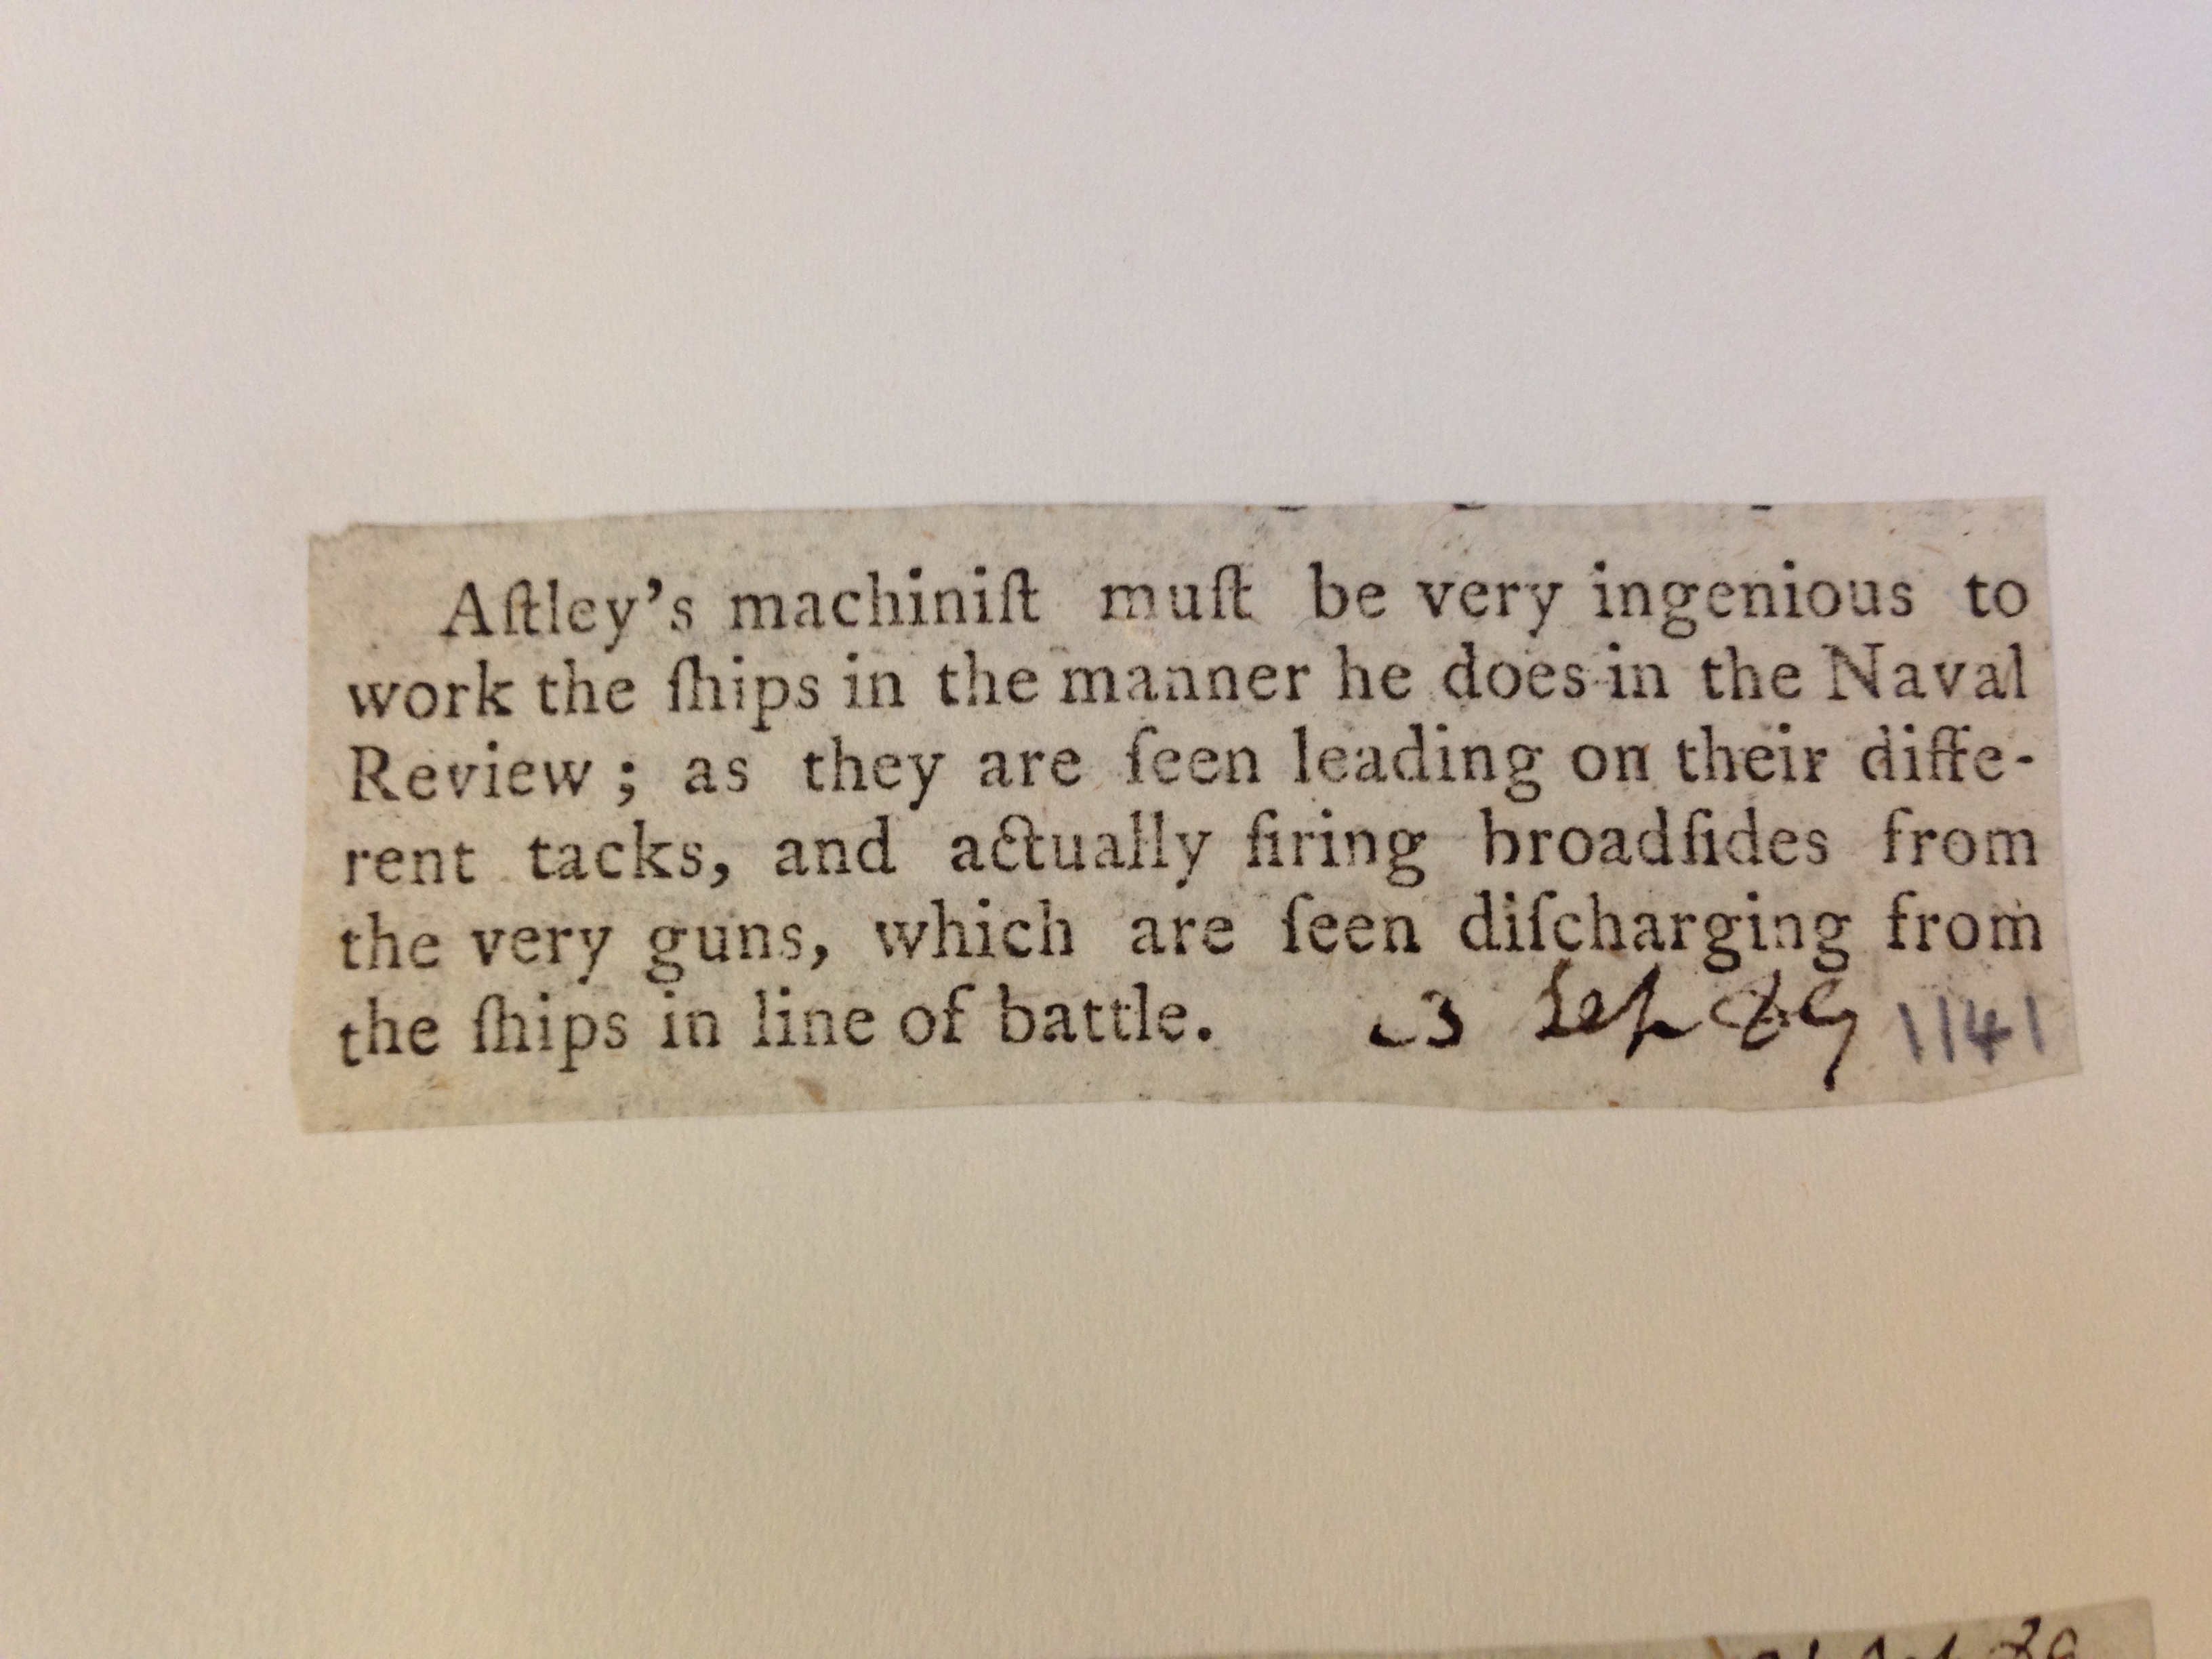 Aſtley's machiniſt muſt be very ingenious to
work the ſhips in the manner he does in the Naval
Review; as they are ſeen leading on their diffe-
rent tacks, and actually firing broadſides from
the very guns, which are ſeen diſcharging from
the ſhips in line of battle. 23 Sep 89 1141